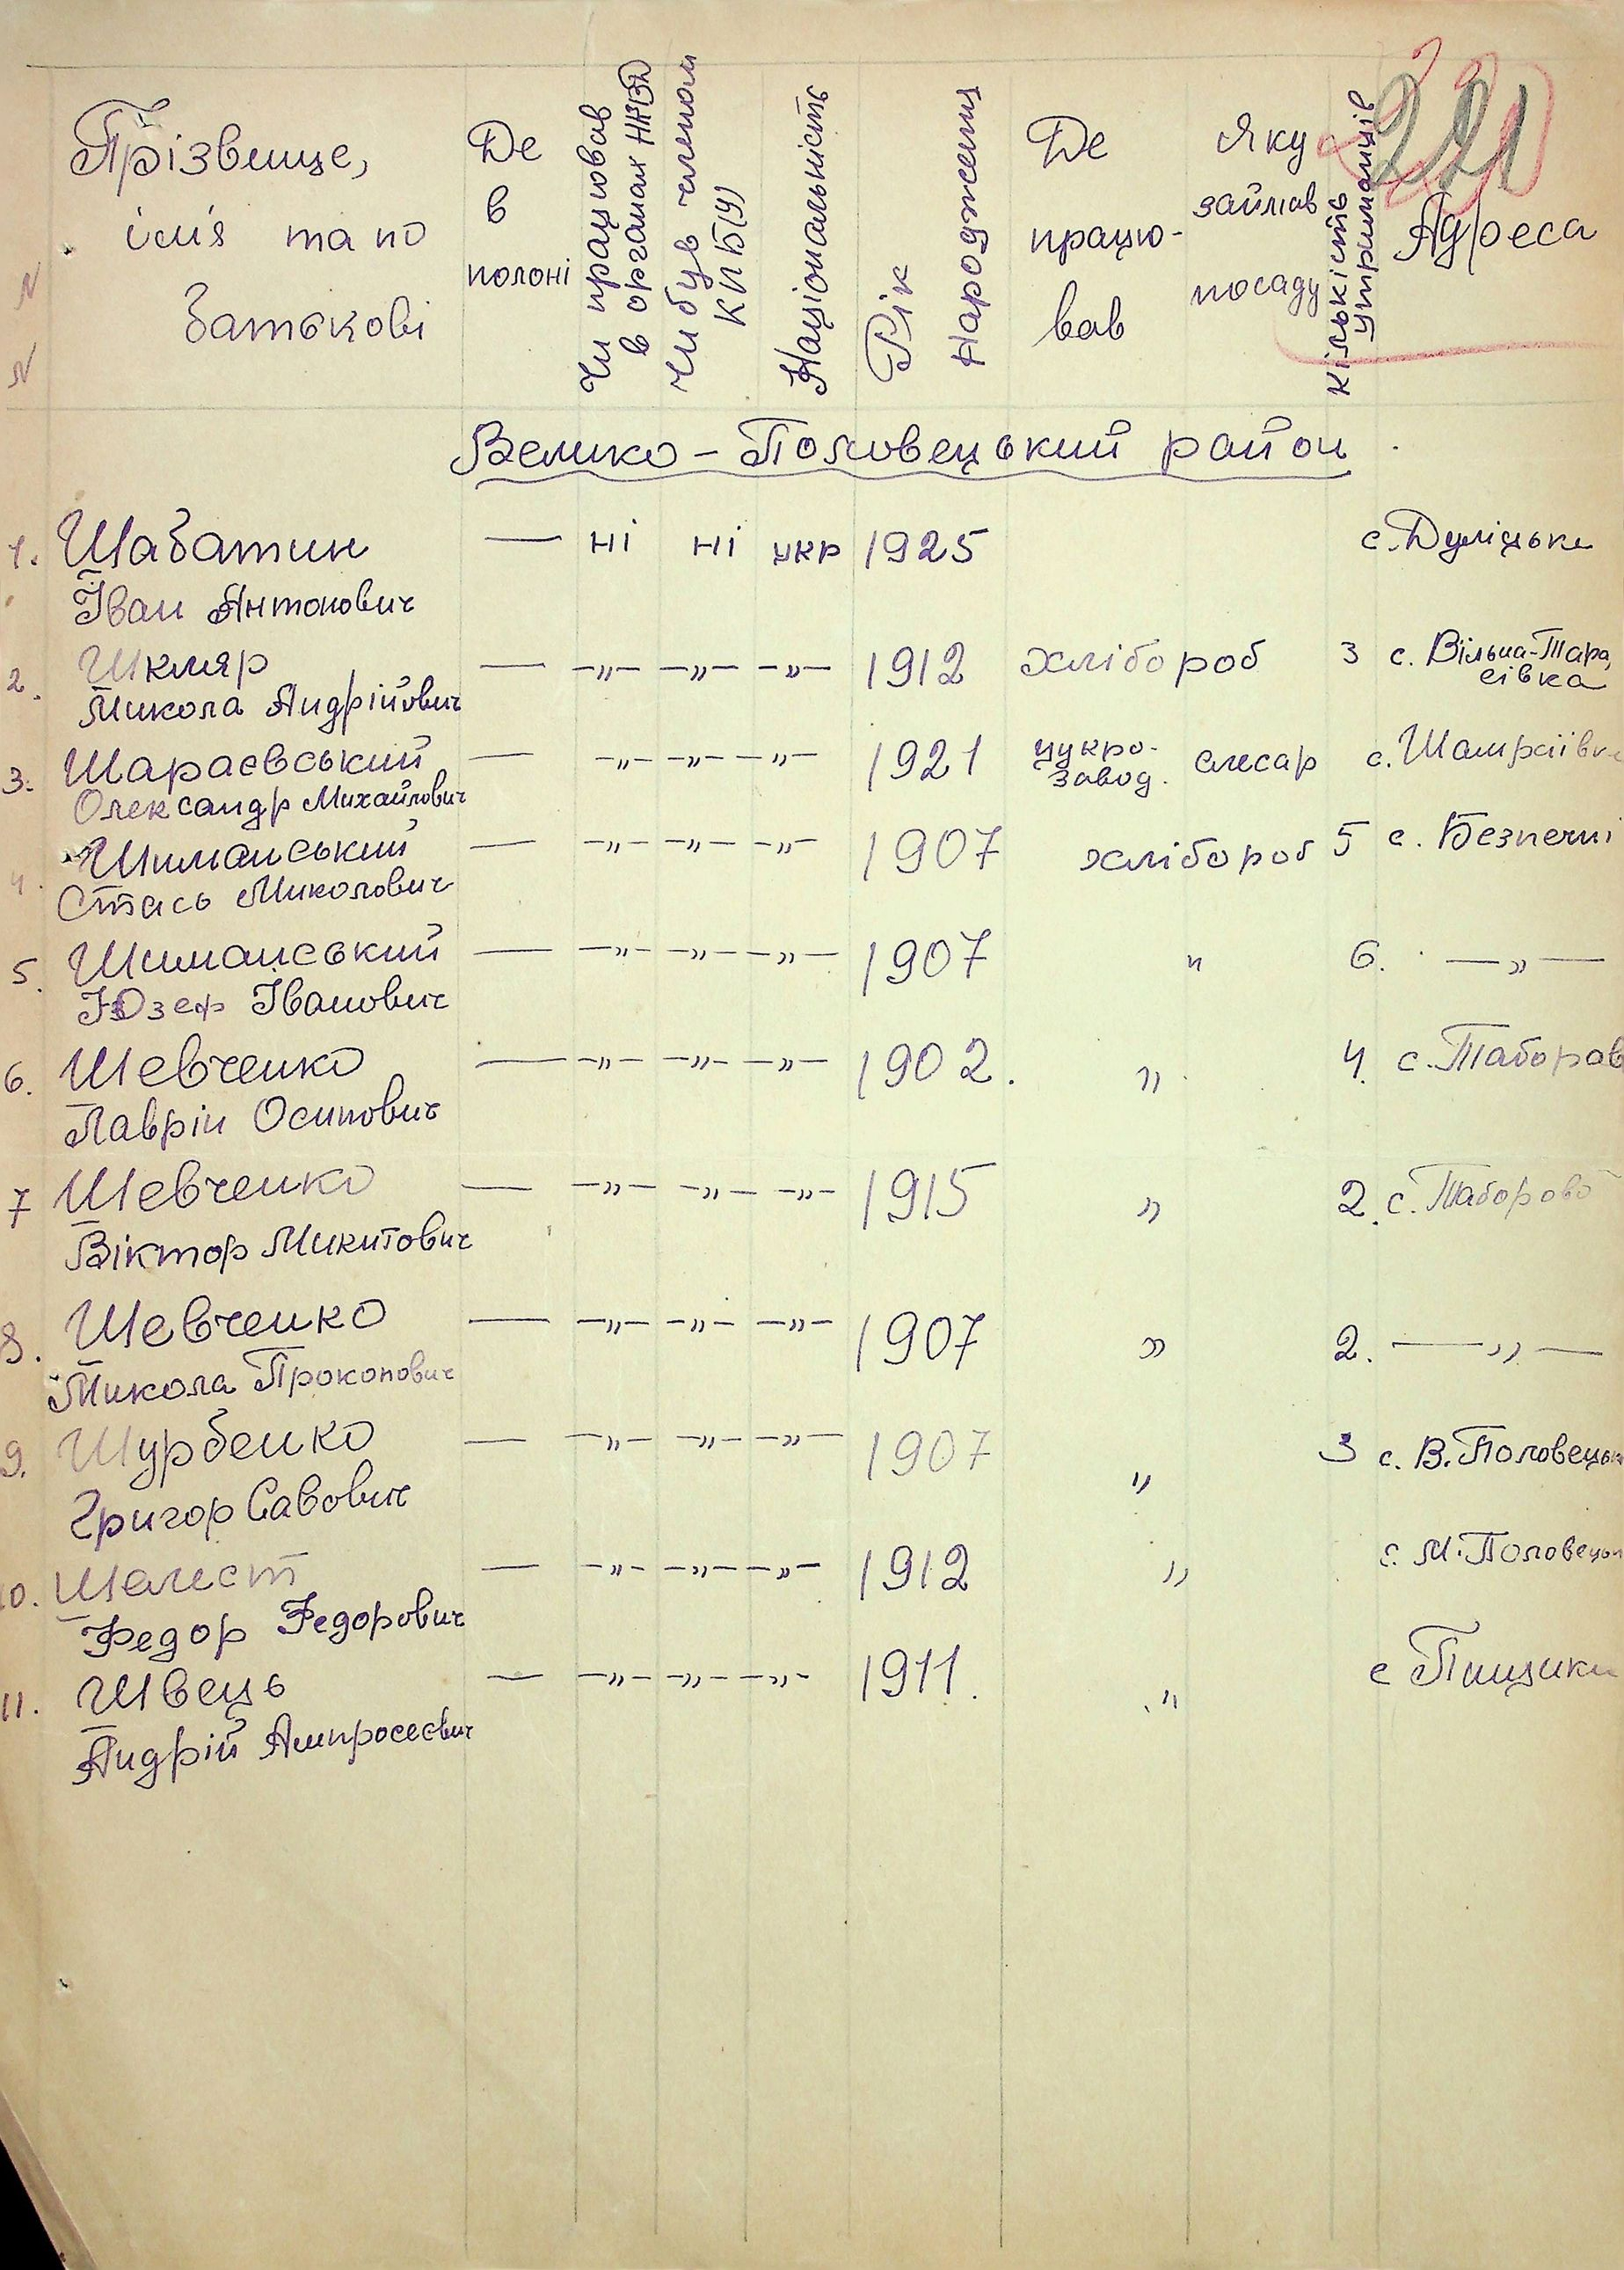 221
N
N
Прізвище,
ім'я та по
батькові
Де
в
полоні
Чи працював
в органах НКВД
Чи був членом
КПБ(У)
Національність
Рік
Народження
Де
працю-
вав
Яку
займав
посаду
Кількість
утриманців
Адреса
Велико-Половецький район
1. Шабатин — ні ні укр 1925 с. Дуліцьке
Іван Антонович
2. Шкляр — —"— —"— —"— 1912 хлібороб 3 с. Вільна-Тара
сівка
Микола Андрійович
3. Шараєвський — —"— —"— —"— 1921 цукро-
завод. слесар с. Шамраївка
Олександр Михайлович
4. Шиманський — —"— —"— —"— 1907 хлібороб 5 с. Безпечні
Стась Миколович
5. Шиманський — —"— —"— —"— 1907 " 6. —"—
Юзеф Іванович
6. Шевченко — —"— —"— —"— 1902. " 4. с. Таборов
Лаврін Осипович
7 Шевченко — —"— —"— —"— 1915 " 2. с. Таборово
Віктор Микитович
8. Шевченко — —"— —"— —"— 1907 " 2. —"—
Микола Прокопович
9. Шурбенко — —"— —"— —"— 1907 " 3 с. В. Половецьк
Григор Савович
10. Шелест — —"— —"— —"— 1912 " с. М. Половецьк
Федор Федорович
11. Швець — —"— —"— —"— 1911. " с Пищики
Андрій Ампросєєвич